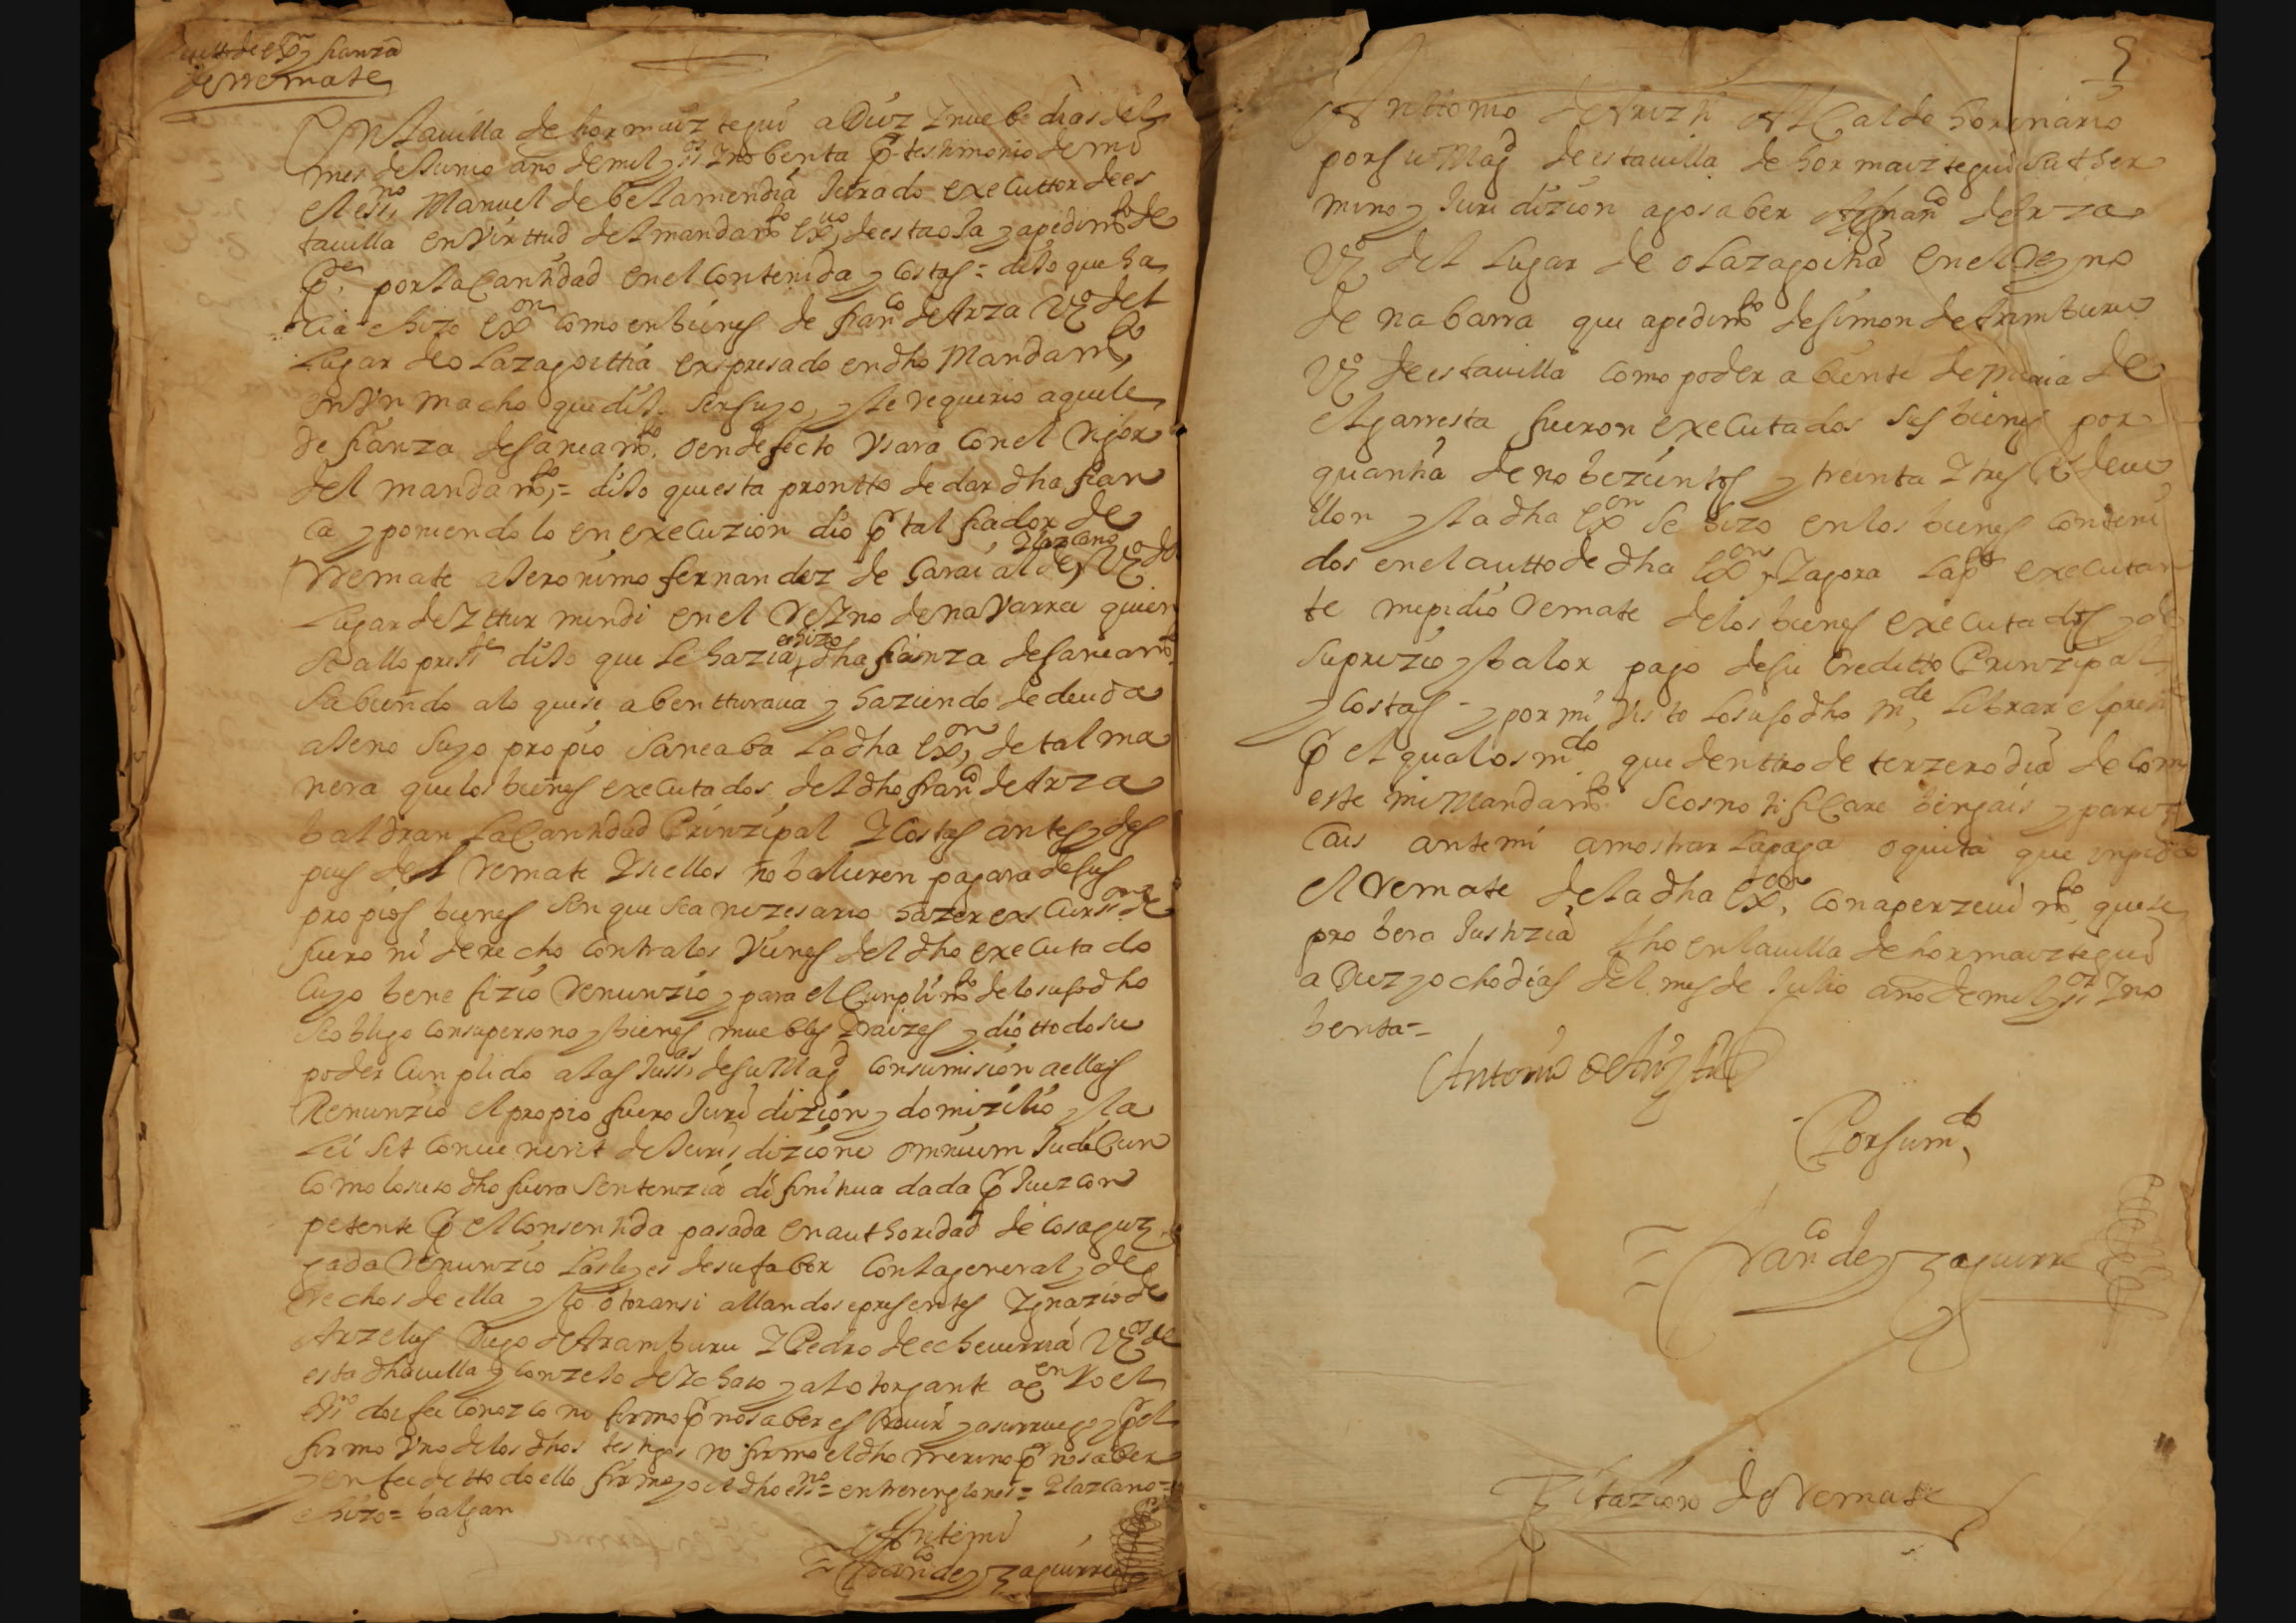 autto de exon y fianza
de rremate
En la uilla de hormaiztegui a Diez Y nuebe dias del
mes de Junio año de mil y ss Y nobenta Por testimonio de mi
el essno Manuel de belamendia Jurado executtor de es
ta uilla en Virttud del mandamto exuo de esta oja y a pedimto de
Pte por la Cantidad en el contenida y costas = dijo que ha
cia e hizo exon como en bienes de franco de Arza Vo del
Lugar de olazagoitia expresado en dho Mandamto
en Vn macho que dijo ser suyo, y le requirio a que le
de fianza de saneamto o en defecto Vsara con el rigor
del mandamto = dijo que esta prontto de dar dha fian
ca y poniendolo en execuzion dio por tal fiador de
rremate a Jeronimo fernandez de Garai alde Ylazcano Vo del
Lugar de Ytturmendi en el Reyno de naVarra quien
se allo preste dijo que le hazia e hizo dha fianza de saneamto
Sabiendo a lo que se abentturaua y haziendo de deuda
ajeno suyo propio saneaba La dha exon de tal ma
nera que los bienes executados del dho franco de Arza
baldran La Cantidad Prinzipal Y Costas antes y des
pues del remate Y si ellos no balieren pagara de sus
propios bienes sin que sea nezesario hazer excursion de
fuero ni derecho contra los Vienes del dho executado
Cuyo benefizio renunzio y para el Cunplimto de lo susodho
se obligo con su persona y bienes muebles Y raizes y dio ttodo su
poder Cunplido a las Justas de su Magd con sumision a ellas
Renunzio el propio fuero Juridizion y domizilio y la
Lei sit conuenerit de Jurisdizione omnium Judicun
Como lo susodho fuera sentenzia difinitiua dada por Juez con
petente por el Consentida pasada en authoridad de cosa juz
gada renunzio Las leyes de su fabor con la general y de
rechos de ella y lo otorgo ansi allandose presentes Ygnazio de
Arzelus Diego de Aramburu Y Pedro de echeuerria Vos de
esta dha uilla y conzejo de Ychaso y al otorgante a quien Yo el
essno doi fee Conozco no firmo por no saber escriuir y a su rruego por el
firmo Vno de los dhos testigos no firmo el dho merino por no saber
y en fee de ttodo ello firme yo el dho essno = entre renglones = Ylazcano =
e hizo = balgan
Ante mi
Franco de Yzaguirre
Anttonio de Aruzti Alcalde hordinario
por su Magd de esta uilla de hormaiztegui su ther
mino y Juridizion ago saber a franco de Arza
Vo del Lugar de olazagoitia en el Reyno
de nabarra que a pedimto de simon de Aramburu
Vo de esta uilla como poder abiente de Maria de
elgarresta fueron executados sus bienes por
quantia de nobezientos y treinta Y tres Rs de ue
llon y la dha exon se hizo en los bienes conteni
dos en el autto de dha exon, Y agora La pte executan
te me pidio remate de los bienes executados y de
su prezio y balor pago de su Creditto Prinzipal
y Costas - y por mi Visto Lo susodho mde Librar el preste
por el qual os mdo que denttro de terzero dia de como
este mi Mandamto se os notificare bengais y parez
cais ante mi a mostrar La paga o quita que inpida
el remate de la dha exon, con aperzeuimto que se
probera Justizia fho en la uilla de hormaiztegui
a Diez y ocho dias del mes de Julio año de mil y ss Y no
benta =
Antonio de Aruzti
Por su mdo
Franco de Yzaguirre
Zitazion de remate